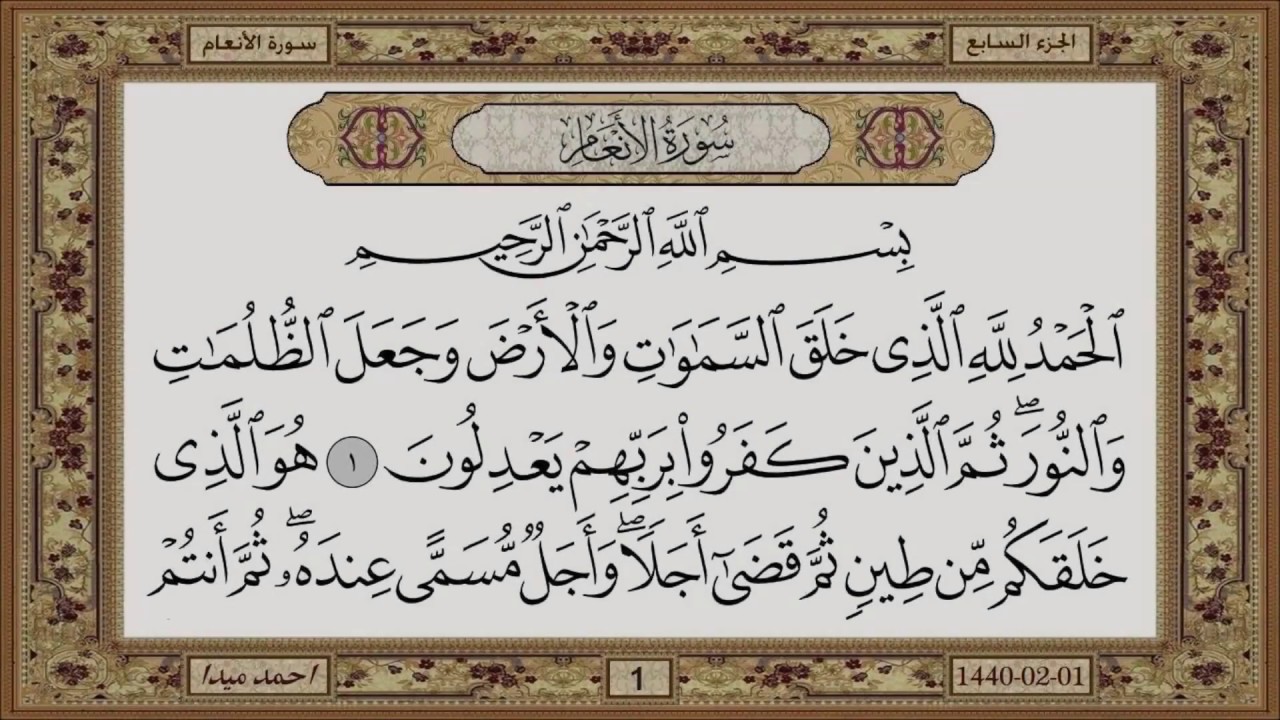 الجزء السابع
سورة الأنعام
سُورَةُ الأَنْعَامِ
بِسْمِ ٱللَّهِ ٱلرَّحْمَٰنِ ٱلرَّحِيمِ
ٱلْحَمْدُ لِلَّهِ ٱلَّذِى خَلَقَ ٱلسَّمَٰوَٰتِ وَٱلْأَرْضَ وَجَعَلَ ٱلظُّلُمَٰتِ
وَٱلنُّورَ ۖ ثُمَّ ٱلَّذِينَ كَفَرُوا۟ بِرَبِّهِمْ يَعْدِلُونَ ١ هُوَ ٱلَّذِى
خَلَقَكُم مِّن طِينٍ ثُمَّ قَضَىٰٓ أَجَلًا ۖ وَأَجَلٌ مُّسَمًّى عِندَهُۥ ۖ ثُمَّ أَنتُمْ
1440-02-01
1
احمد ميدا